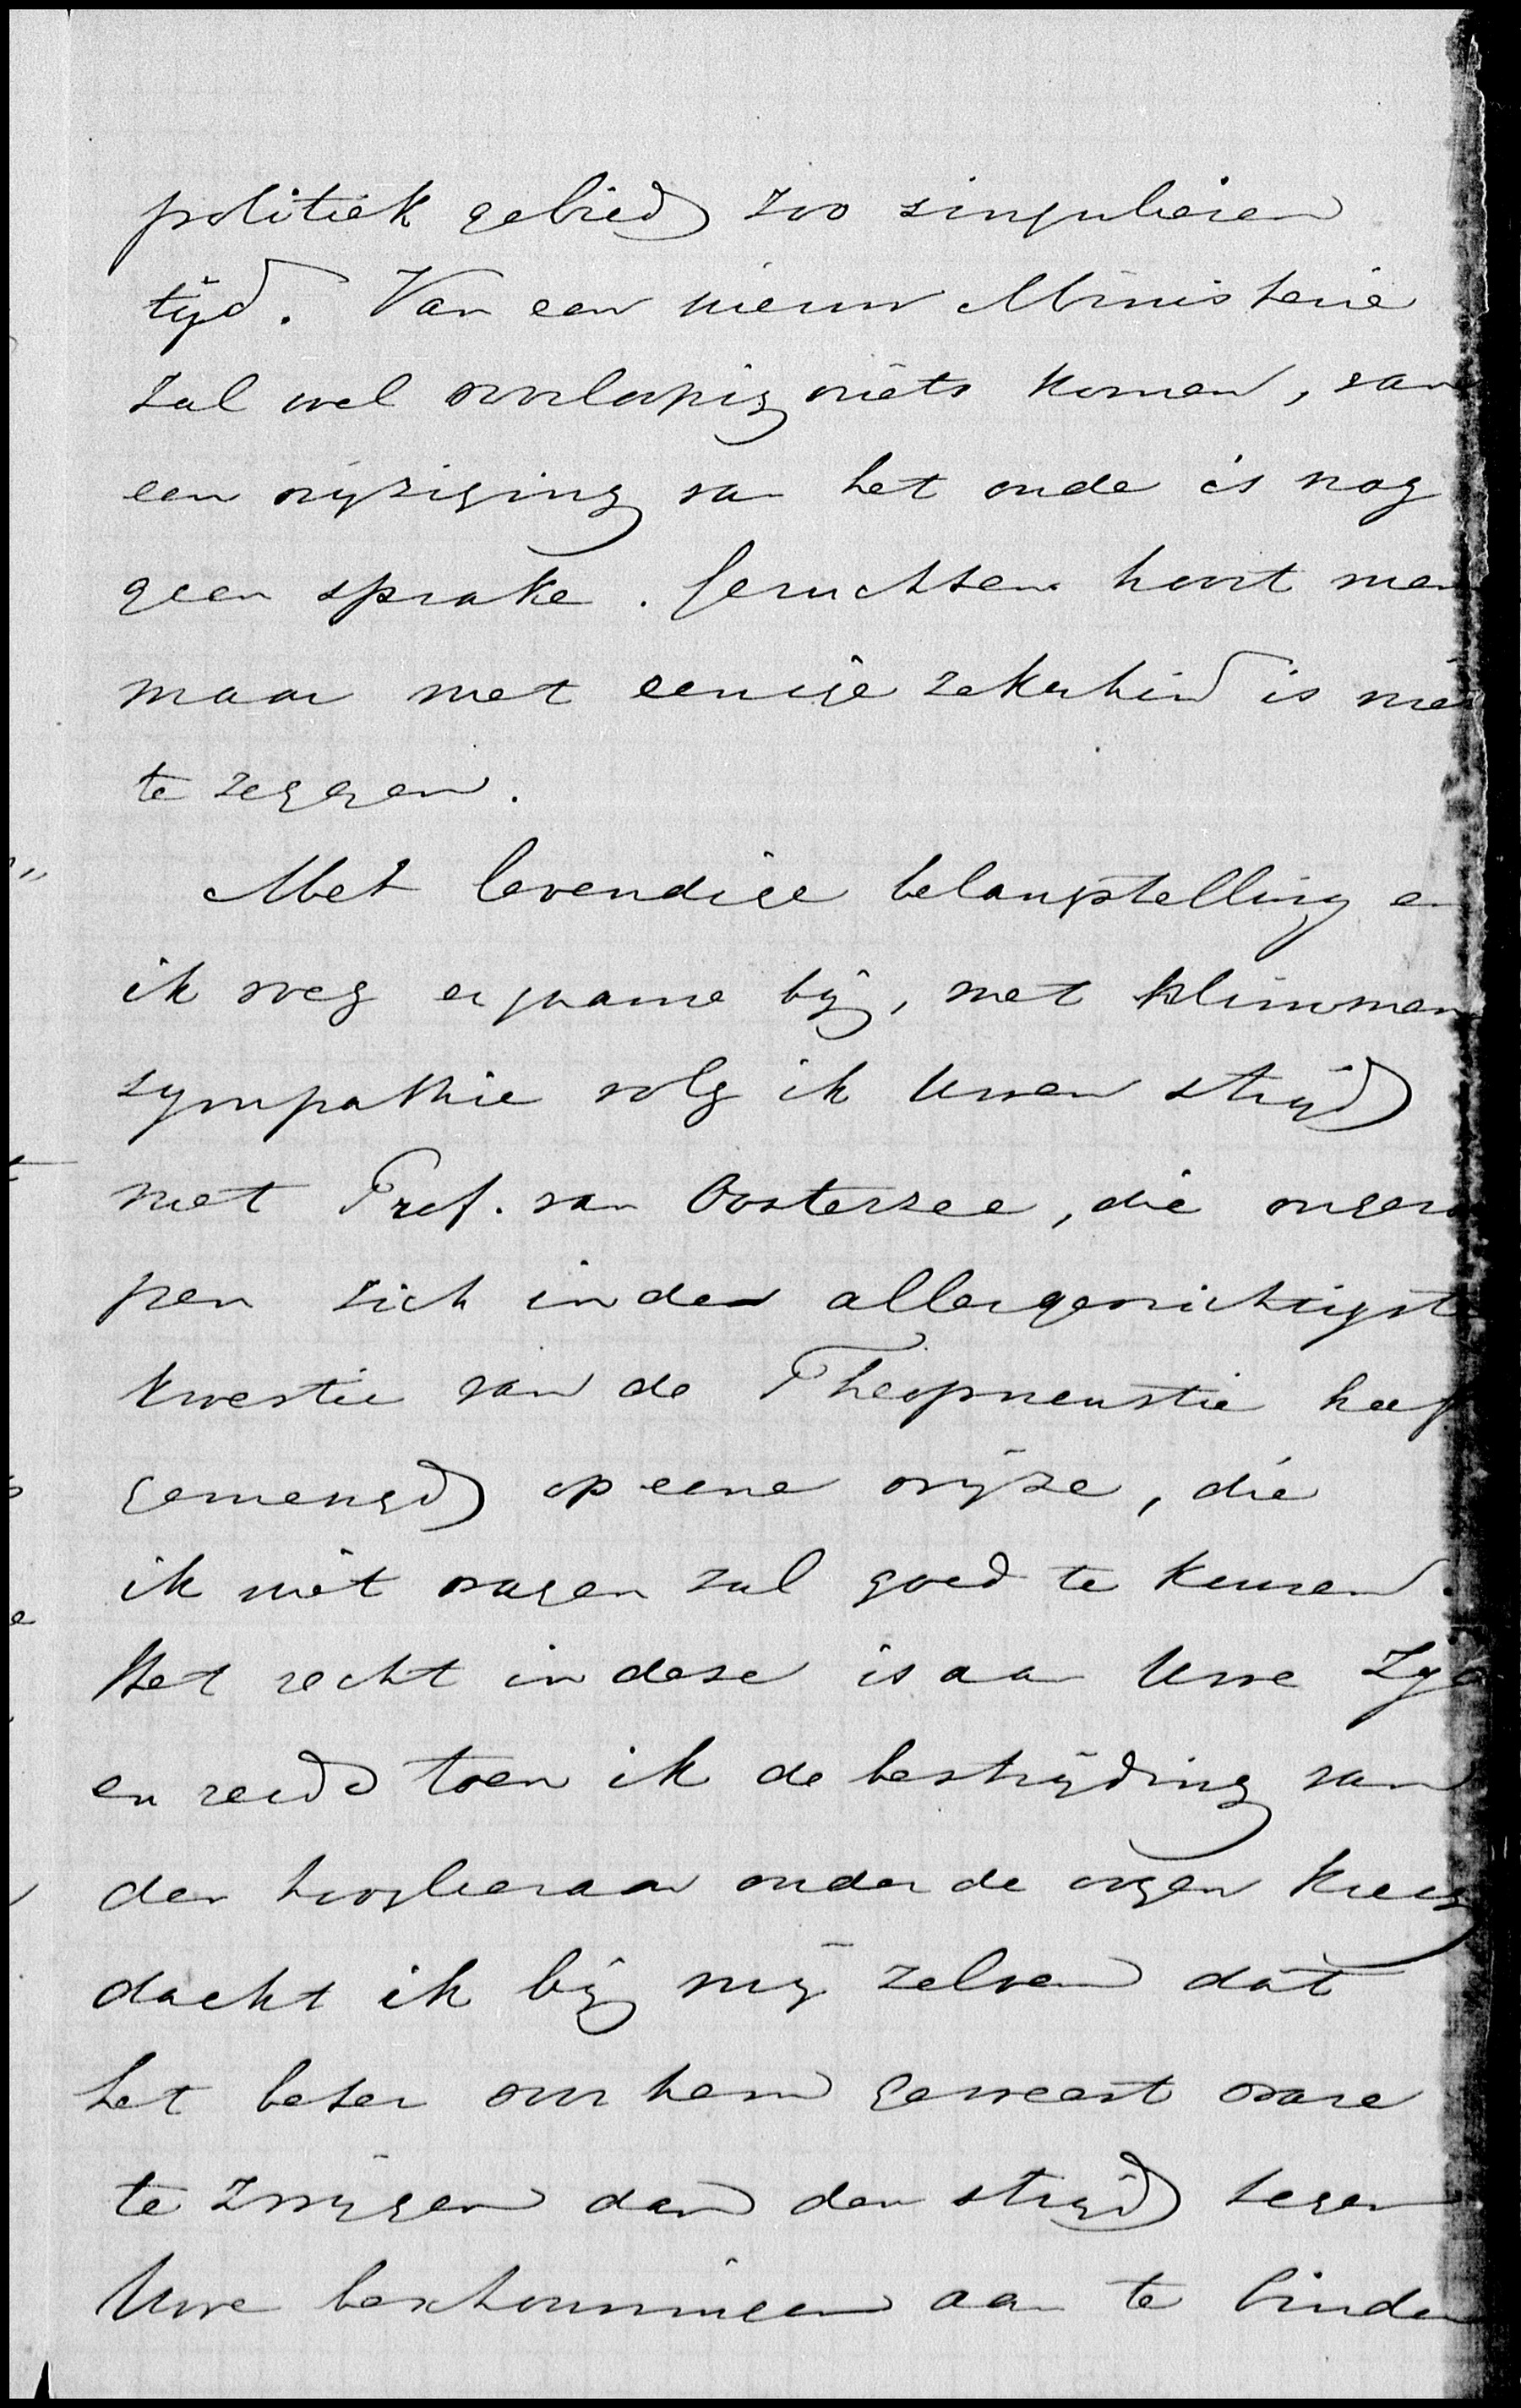 politiek gebied zoo singulieren
tijd. Van een nieuw Ministerie
zal wel voorloopig niets komen, van
een wijziging van het oude is nog
geen sprake. Geruchten hoort men
maar met eenige zekerheid is niets
te zeggen.
Met levendige belangstelling en
ik voeg er gaarne bij, met klimmend
sympathie volg ik Uwen strijd
met Prof. van Oosterzee, die ongeroe
pen zich in de allergewichtigste
kwestie van de Theopneustie heeft
gemengd op eene wijze, die
ik niet wagen zal goed te keuren.
Het recht in deze is aan Uwe Zijde
en reeds toen ik de bestrijding van
den hoogleeraar onder de oogen kreeg
dacht ik bij mij zelven dat
het beter voor hem geweest ware
te zwijgen dan den strijd tegen
Uwe beschouwingen aan te binden